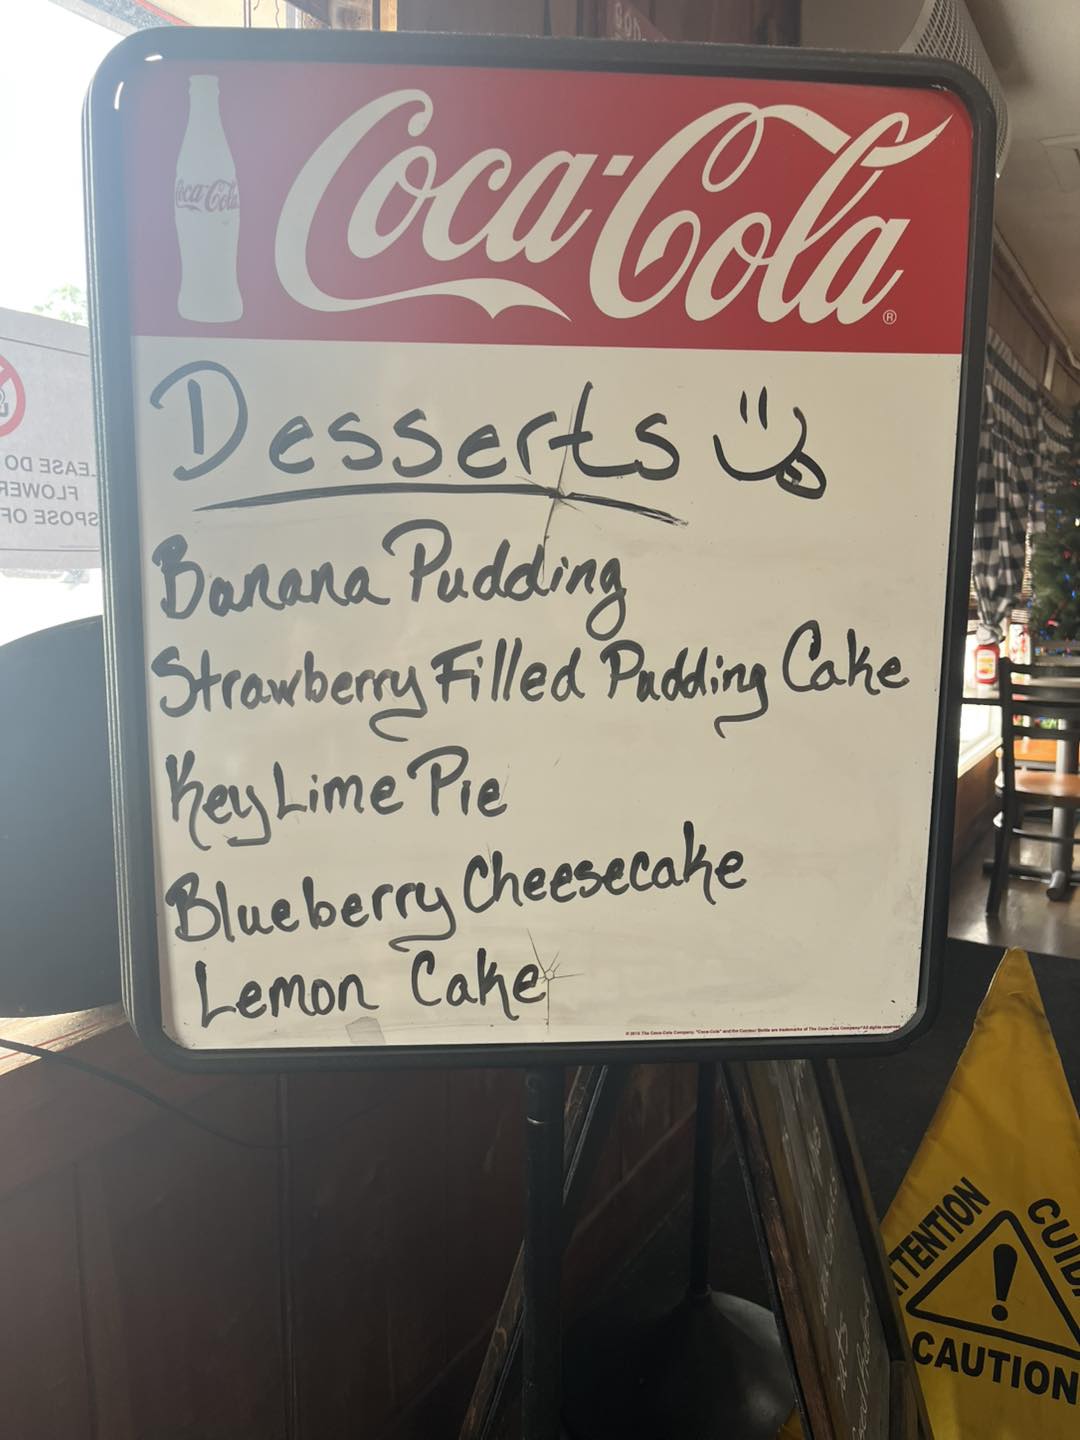 Coca-Cola
Coca-Cola ®
Desserts
Banana Pudding
Strawberry Filled Pudding Cake
Key Lime Pie
Blueberry Cheesecake
Lemon Cake
EASE DO
FLOWER
SPOSE OF
CAUTION